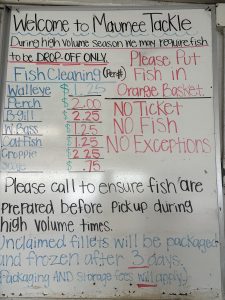 Welcome to Maumee Tackle
During high volume season we may require fish
to be DROP-OFF ONLY.
Please Put
Fish in
Orange Basket
Fish Cleaning (Per#)
Walleye $1.25
Perch $2.00
B-gill $2.25
W. Bass $1.25
Catfish $1.25
Crappie $2.25
$.75
NO Ticket
NO Fish
NO Exceptions
Please call to ensure fish are
Prepared before Pickup during
high volume times.
Unclaimed fillets will be packaged
and frozen after 3 days.
(Packaging AND Storage fees will apply)